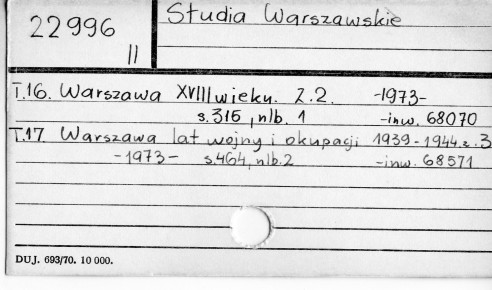 22996
II
Studia Warszawskie
T.16. Warszawa XVIII wieku. Z.2. -1973-
s.315, nlb. 1 -inw. 68070
T.17 Warszawa lat wojny i okupacji 1939-1944.z.3
-1973- s.464, nlb.2 -inw. 68571
DUJ. 693/70. 10 000.